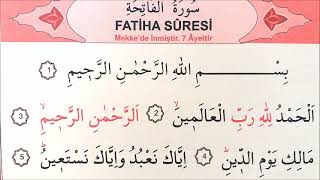 سُورَةُ الْفَاتِحَةِ
FATİHA SÛRESİ
Mekke'de İnmiştir. 7 Âyettir
بِسْــــــمِ اللهِ الرَّحْمٰنِ الرَّحِيمِ ١
اَلْحَمْدُ لِلّٰهِ رَبِّ الْعَالَمِينَۙ ٢ اَلرَّحْمٰنِ الرَّحِيمِۙ ٣
مَالِكِ يَوْمِ الدِّينِۜ ٤ اِيَّاكَ نَعْبُدُ وَاِيَّاكَ نَسْتَعِينُۜ ٥